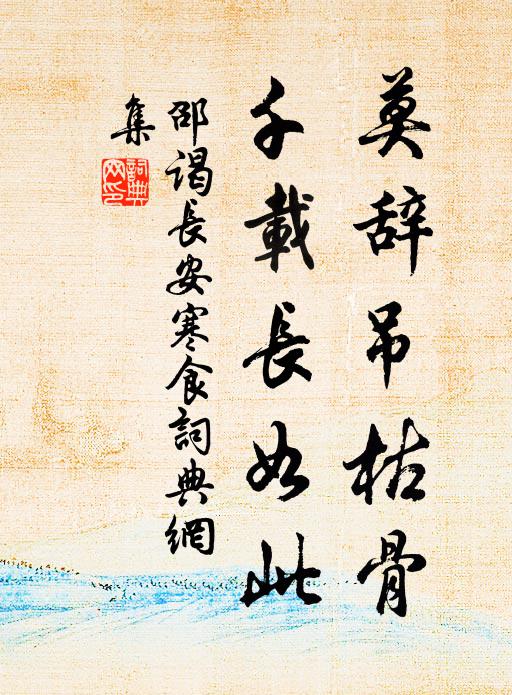 莫辞吊枯骨
千載長如此
邵谒長安寒食詞典網
集
詞典
网印